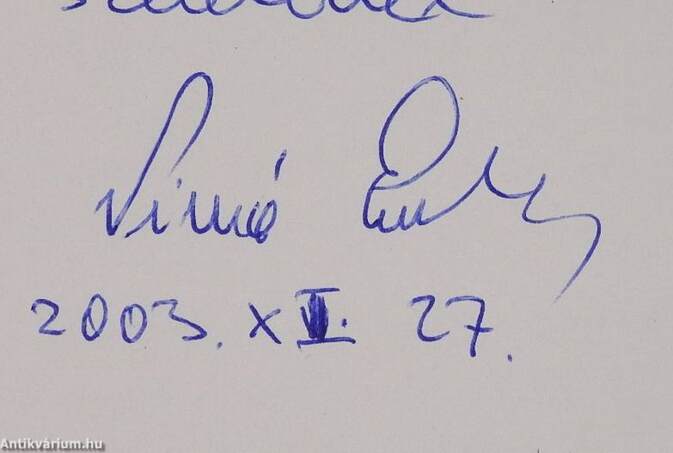 Simó
2003. XII. 27.
Antikvárium.hu